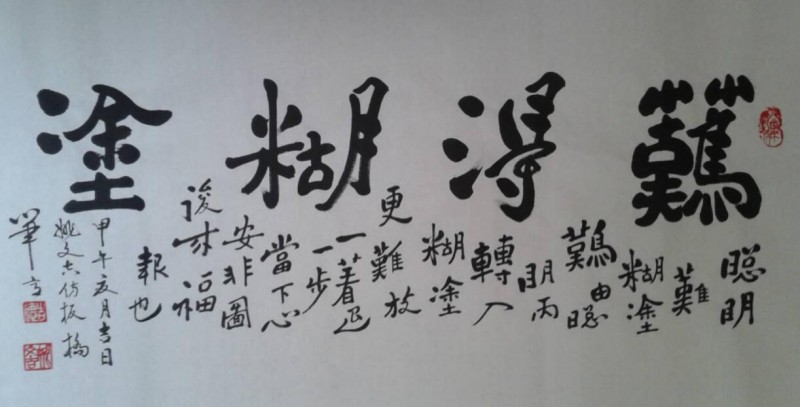 難得糊塗
聰明
難
糊塗
難由聰
明而
轉入
糊塗
更難放
一著退
一步
當下心
安非圖
後來福
報也
甲午亥月吉日
姚文仿板橋
筆意